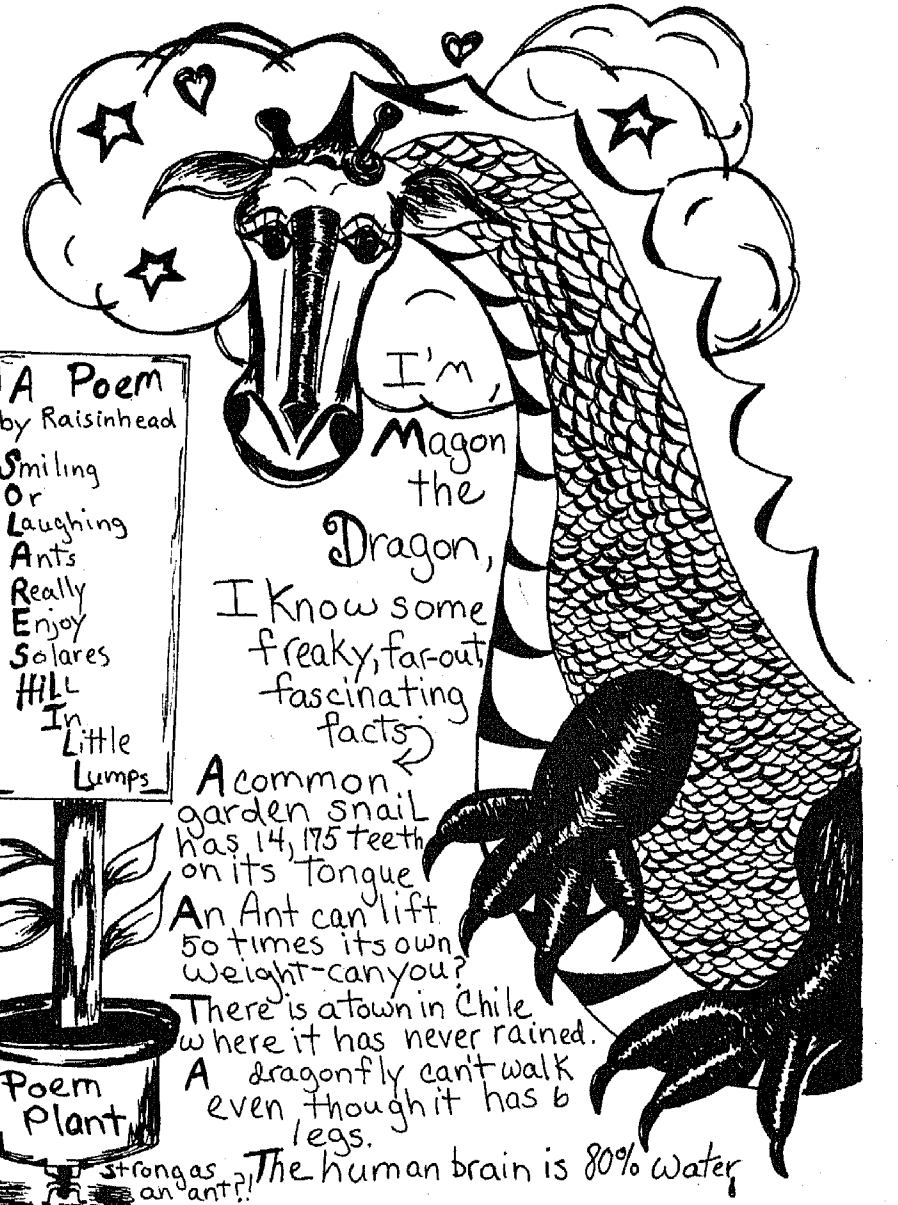 A Poem
by Raisinhead
Smiling
Or
Laughing
Ants
Really
Enjoy
Solares
HilL
In
Little
Lumps
Poem
Plant
strong as
an ant?!
I'm
Magon
the
Dragon,
I know some
freaky, far-out,
fascinating
facts
A common
garden snail
has 14,175 teeth
on its tongue
An Ant can lift
50 times its own
weight-can you?
There is a town in Chile
where it has never rained.
A dragonfly can't walk
even though it has 6
legs.
The human brain is 80% water